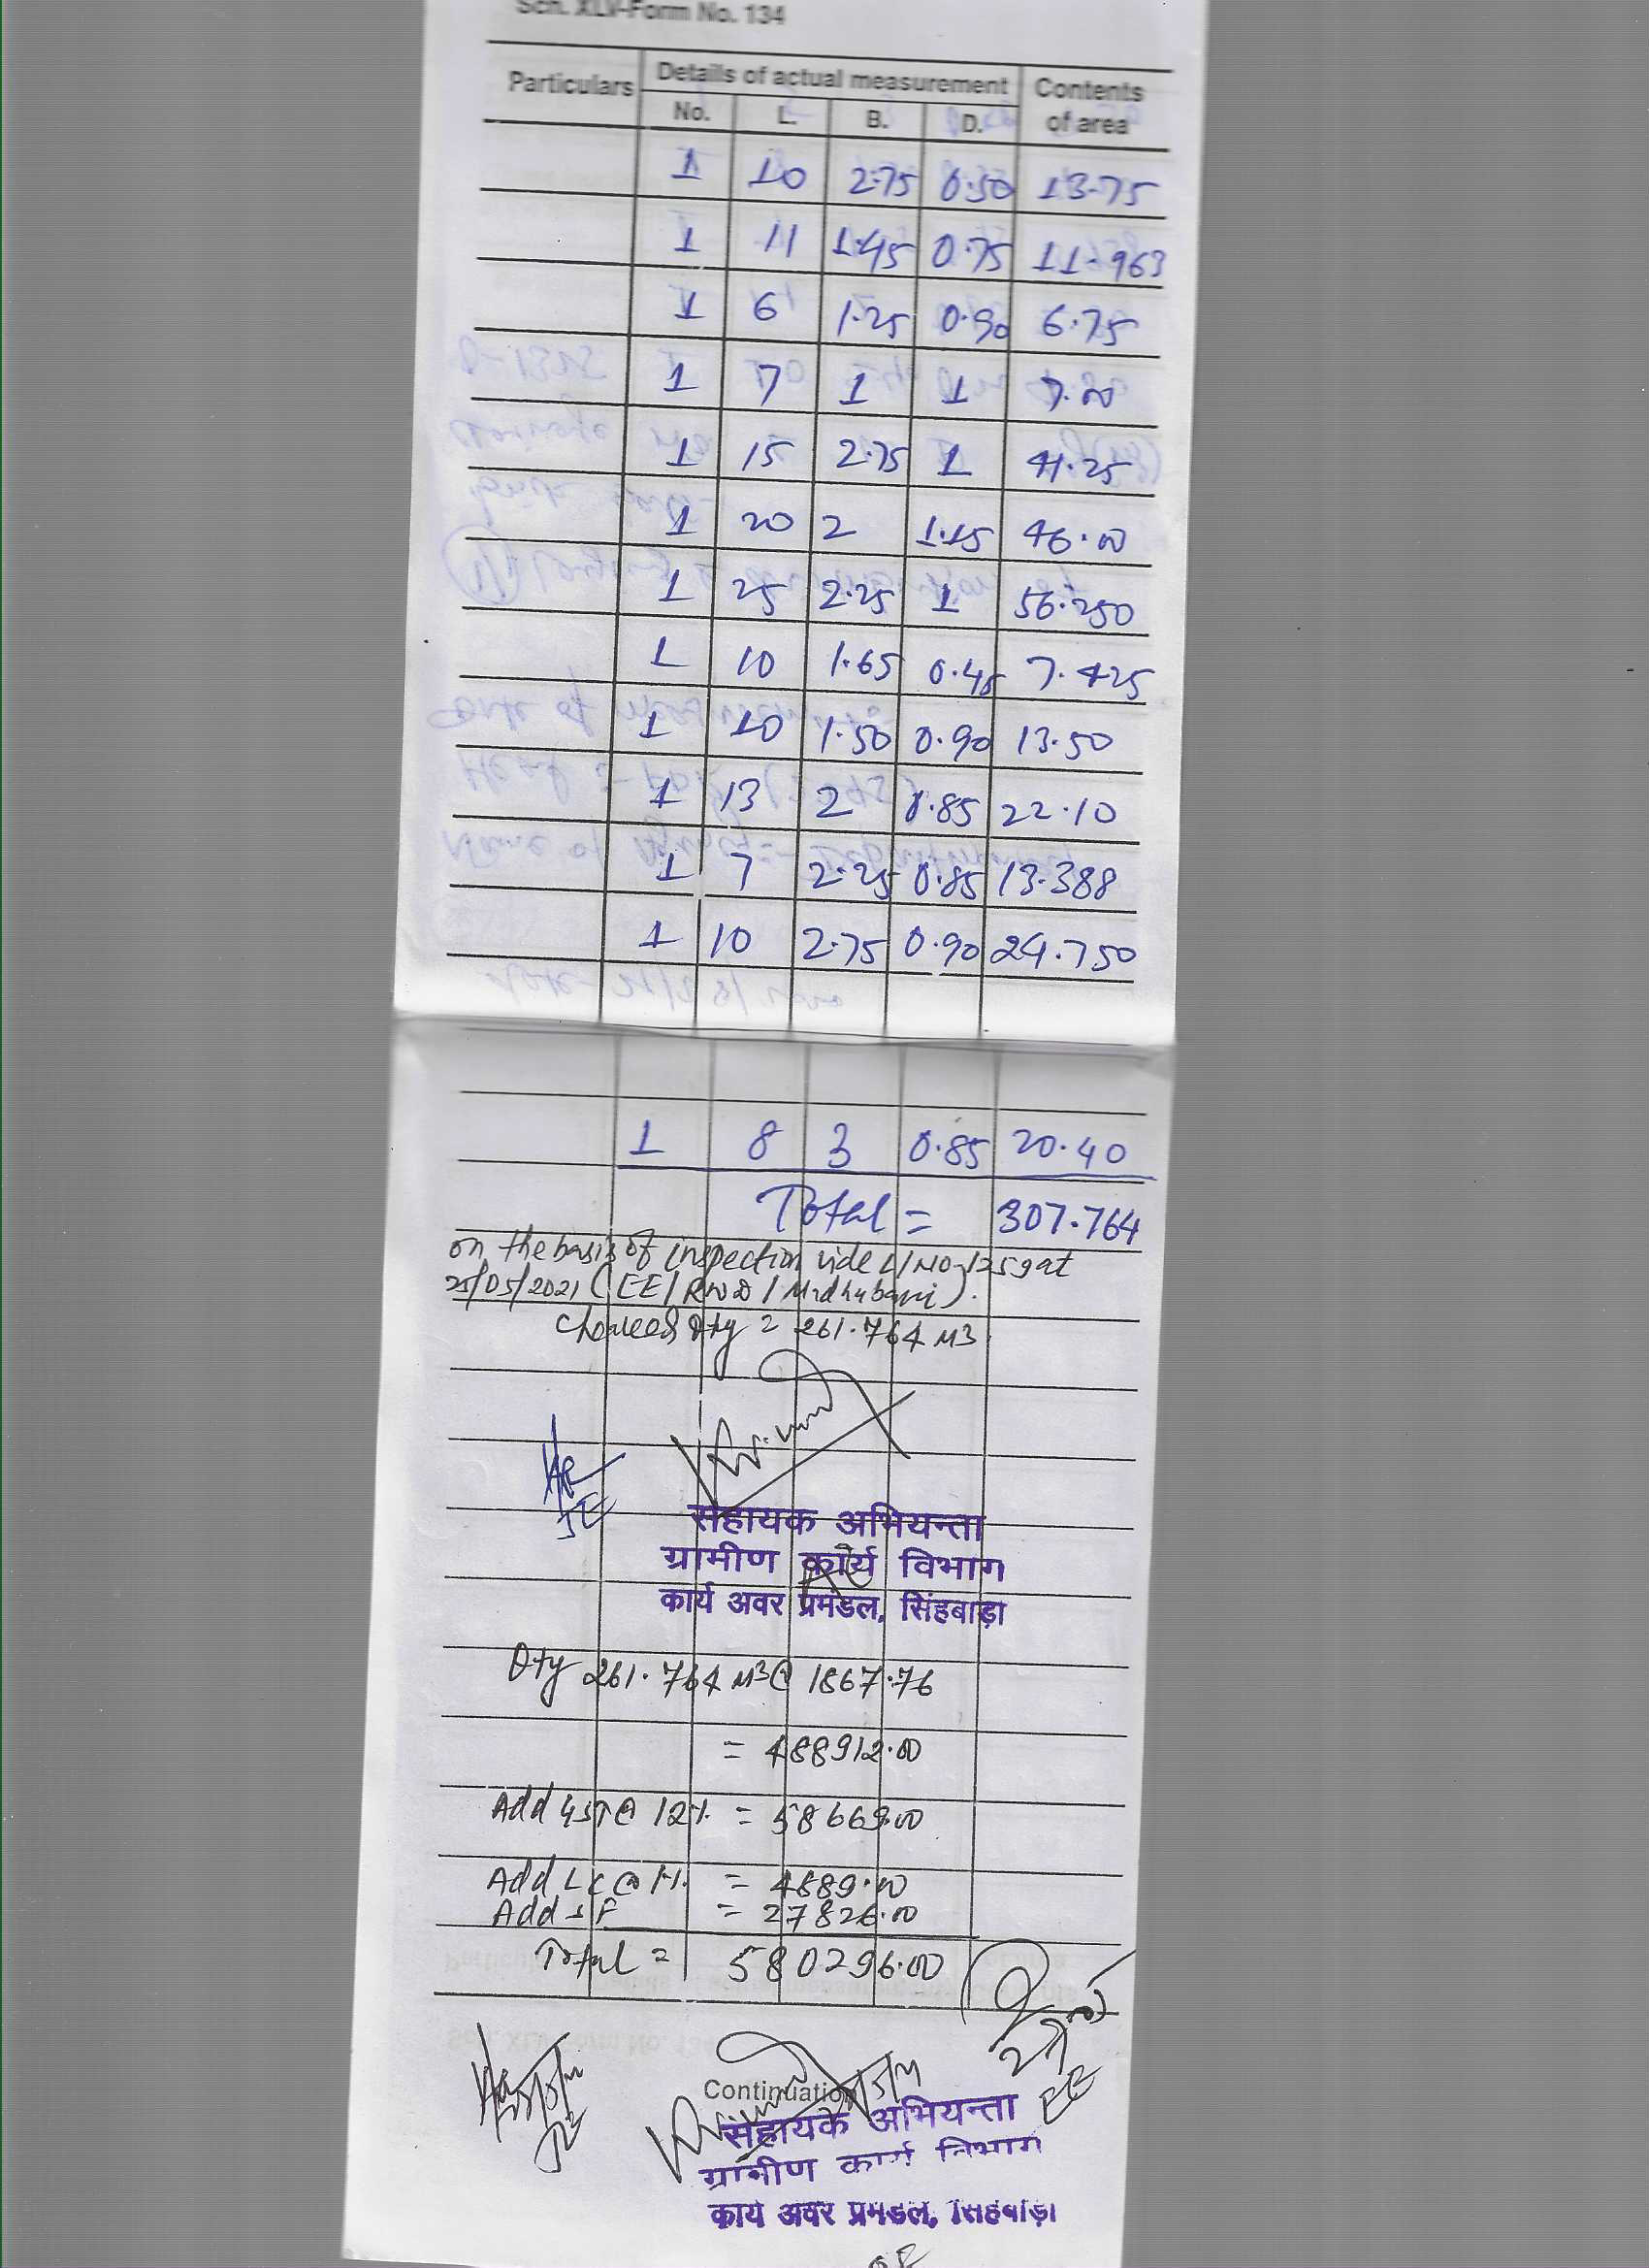 Sch. XLV-Form No. 134
Particulars Details of actual measurement Contents of area
No. L. B. D.
1 10 2.75 0.50 13.75
1 11 1.45 0.75 11.963
1 6 1.25 0.90 6.75
1 7 1 1 7.00
1 15 2.75 1 41.25
1 20 2 1.15 46.00
1 25 2.25 1 56.250
1 10 1.65 0.45 7.425
1 10 1.50 0.90 13.50
1 13 2 0.85 22.10
1 7 2.25 0.85 13.388
1 10 2.75 0.90 24.750
1 8 3 0.85 20.40
Total = 307.764
on the basis of inspection vide
25/05/2021 (EE/RWD/Madhubani).
Qty = 261.764 M3
JE
सहायक अभियन्ता
ग्रामीण कार्य विभाग
कार्य अवर प्रमंडल, सिंहबाड़ा
Qty 261.764 M3 @ 1867.76
= 488912.00
Add GST @ 12% = 58669.00
Add LC @ 1%. = 4889.00
Add SF = 27826.00
Total = 580296.00
Continuation
JE
EE
सहायक अभियन्ता
ग्रामीण कार्य विभाग
कार्य अवर प्रमंडल, सिंहबाड़ा